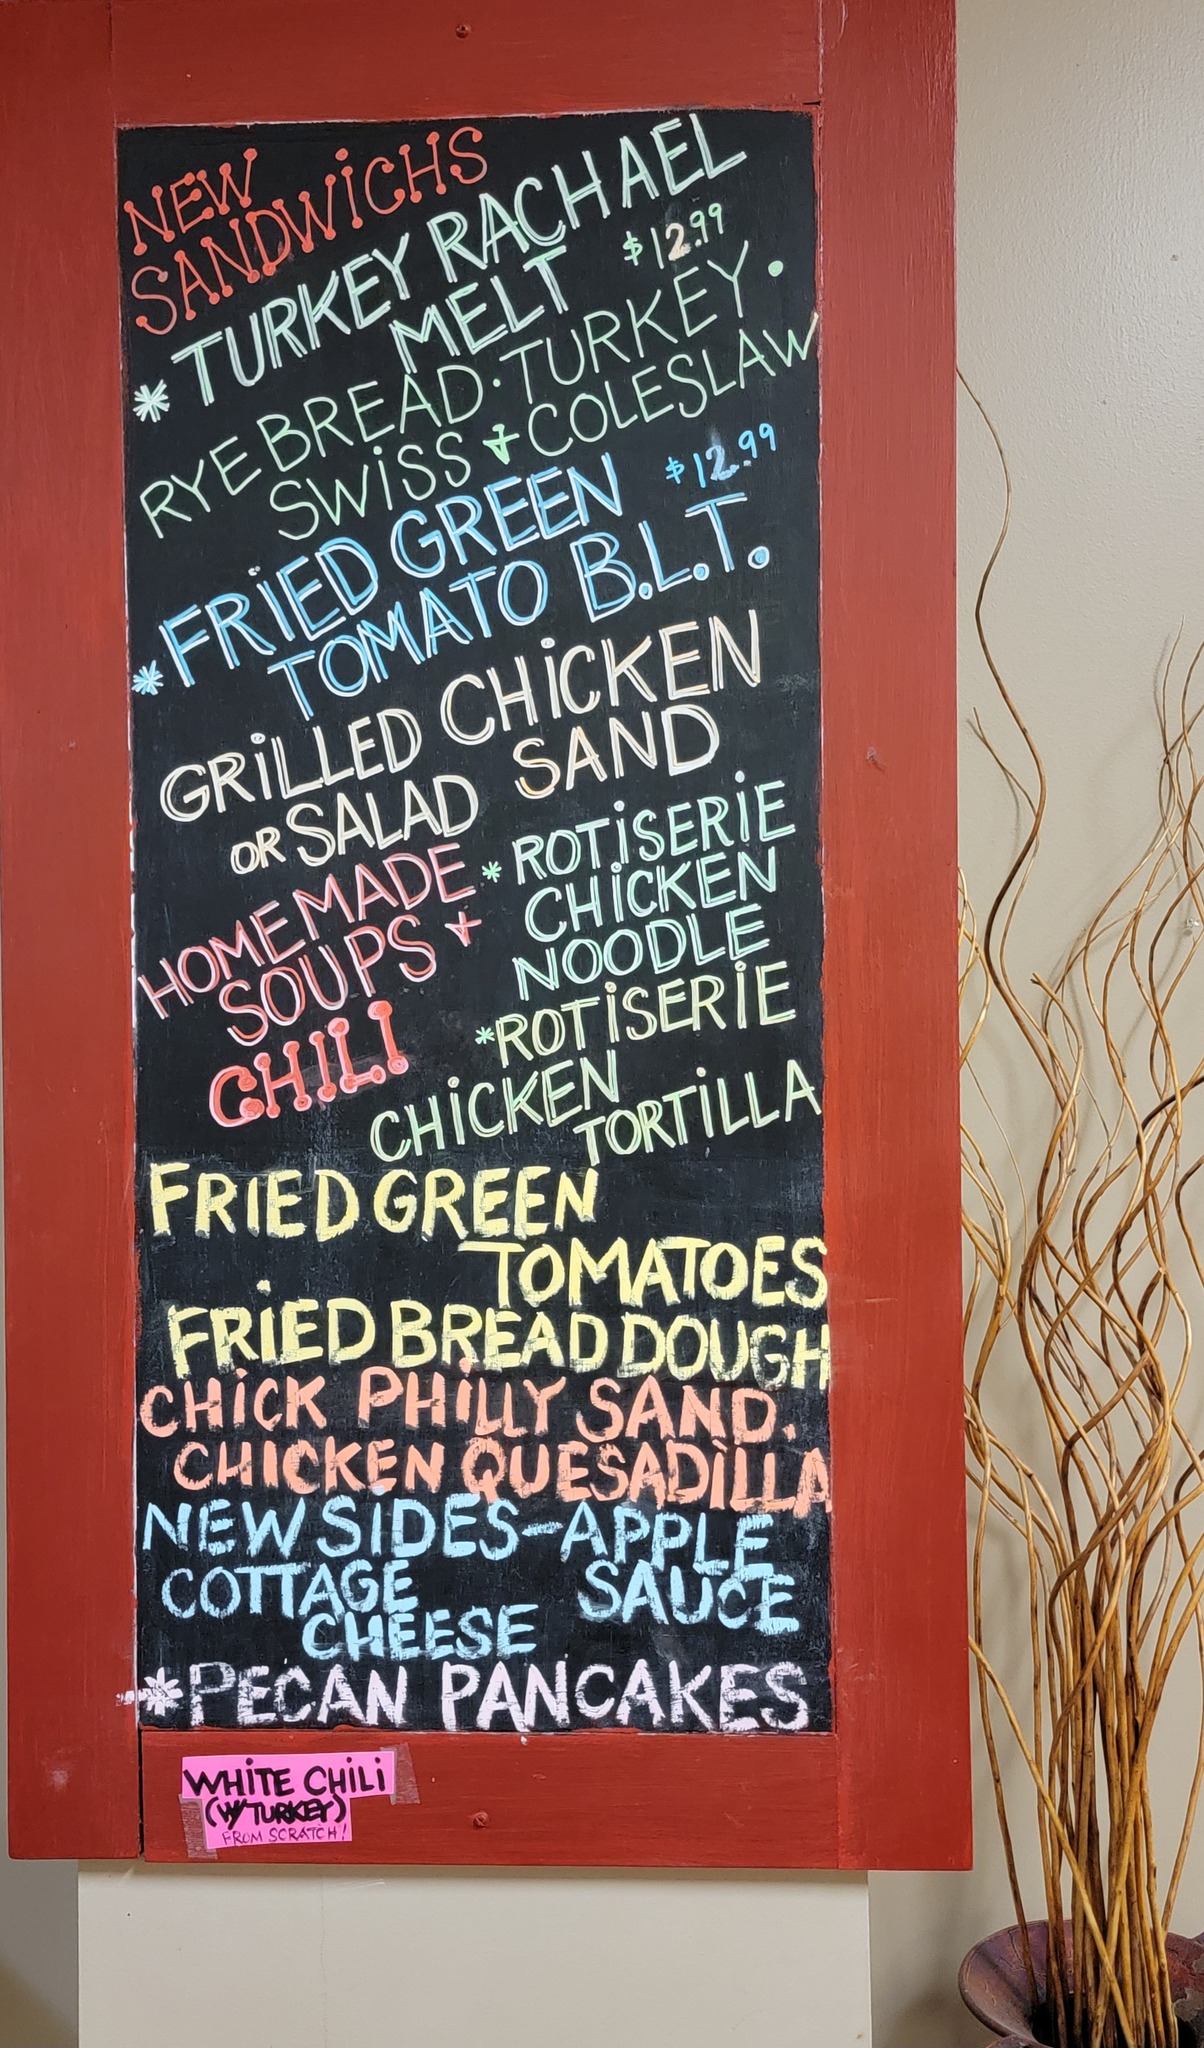 NEW
SANDWiCHS
* TURKEY RACHAEL
MELT $12.99
RYE BREAD · TURKEY ·
SWiSS + COLESLAW
* FRiED GREEN $12.99
TOMATO B.L.T.
GRiLLED CHiCKEN
OR SALAD SAND
HOMEMADE
SOUPS +
CHiLi
* ROTiSERiE
CHiCKEN
NOODLE
* ROTiSERiE
CHiCKEN
TORTiLLA
FRiED GREEN
TOMATOES
FRiED BREAD DOUGH
CHiCK PHiLLY SAND.
CHiCKEN QUESADiLLA
NEW SiDES - APPLE
SAUCE
COTTAGE
CHEESE
* PECAN PANCAKES
WHiTE CHiLi
(W/TURKEY)
FROM SCRATCH!